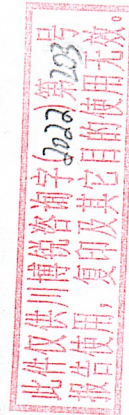 此件仅供川博锐咨询字(2022)第203号
报告使用，复印及其它目的使用无效。